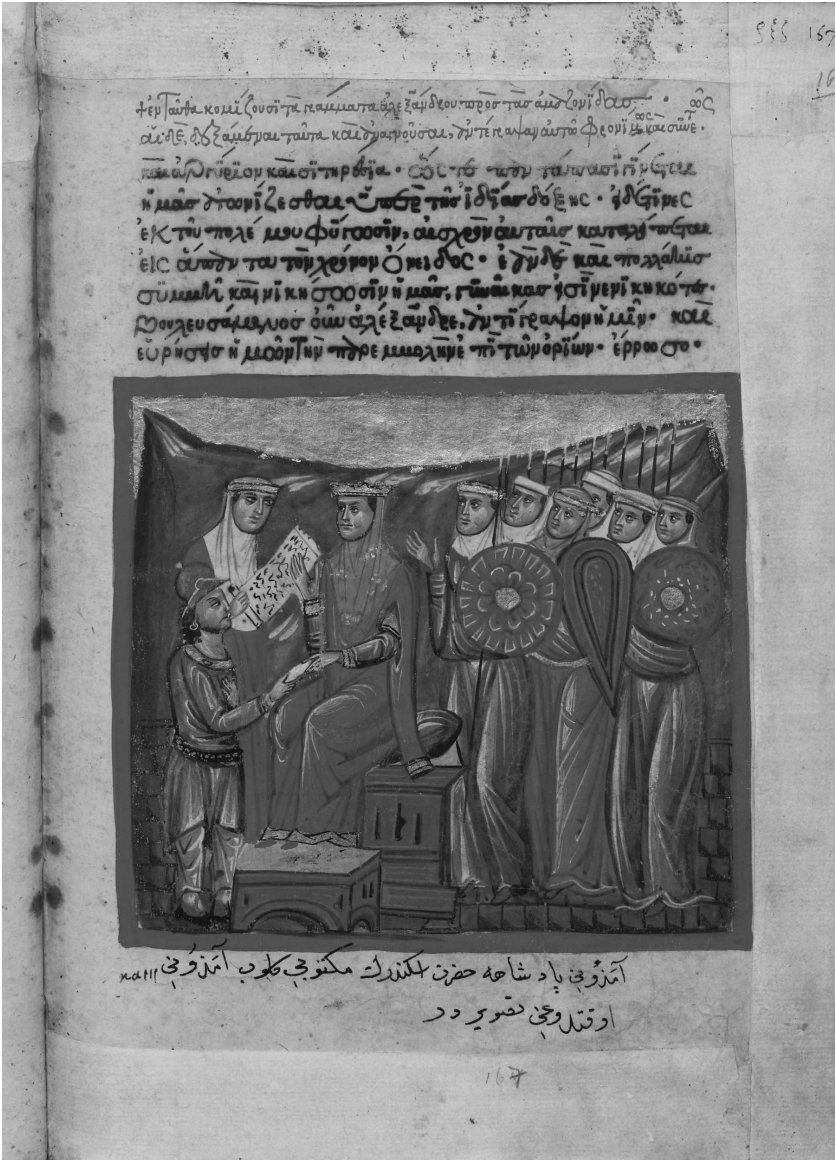 167
16
+ ἐνταῦθα κομίζουσι τὰ γράμματα ἀλεξάνδρου πρὸς τὰς ἀμαζονίδας ·
αἱ δὲ, δεξάμεναι ταῦτα καὶ ἀναγνοῦσαι, ἀντέγραψαν αὐτῷ φρονίμως καὶ συνε
καὶ ἀργύριον καὶ σιτηρέσια ·
ἡμᾶς ἀγωνίζεσθαι ὑπὲρ τῆς ἰδίας δόξης · εἰ δέ τινες
ἐκ τοῦ πολέμου φύγωσιν, αἰσχρὸν αὐταῖς καταλείπεται
εἰς ἅπαντα τὸν χρόνον ὄνειδος · ἐὰν δὲ καὶ πολλάκις
συμβῆ καὶ νικήσωσιν ἡμᾶς, γυναῖκας εἰσὶ νενικηκότες ·
βουλευσάμενος οὖν ἀλέξανδρε, ἀντίγραψον ἡμῖν · καὶ
εὑρήσεις ἡμῶν τὴν παρεμβολὴν ἐπὶ τῶν ὁρίων · ἔρρωσο ·
آمَزُونِ پادشاهه حضرت اسكندرك مكتوبي كلوب آمَزُونِ
اوقتدوغي تصويردر
167